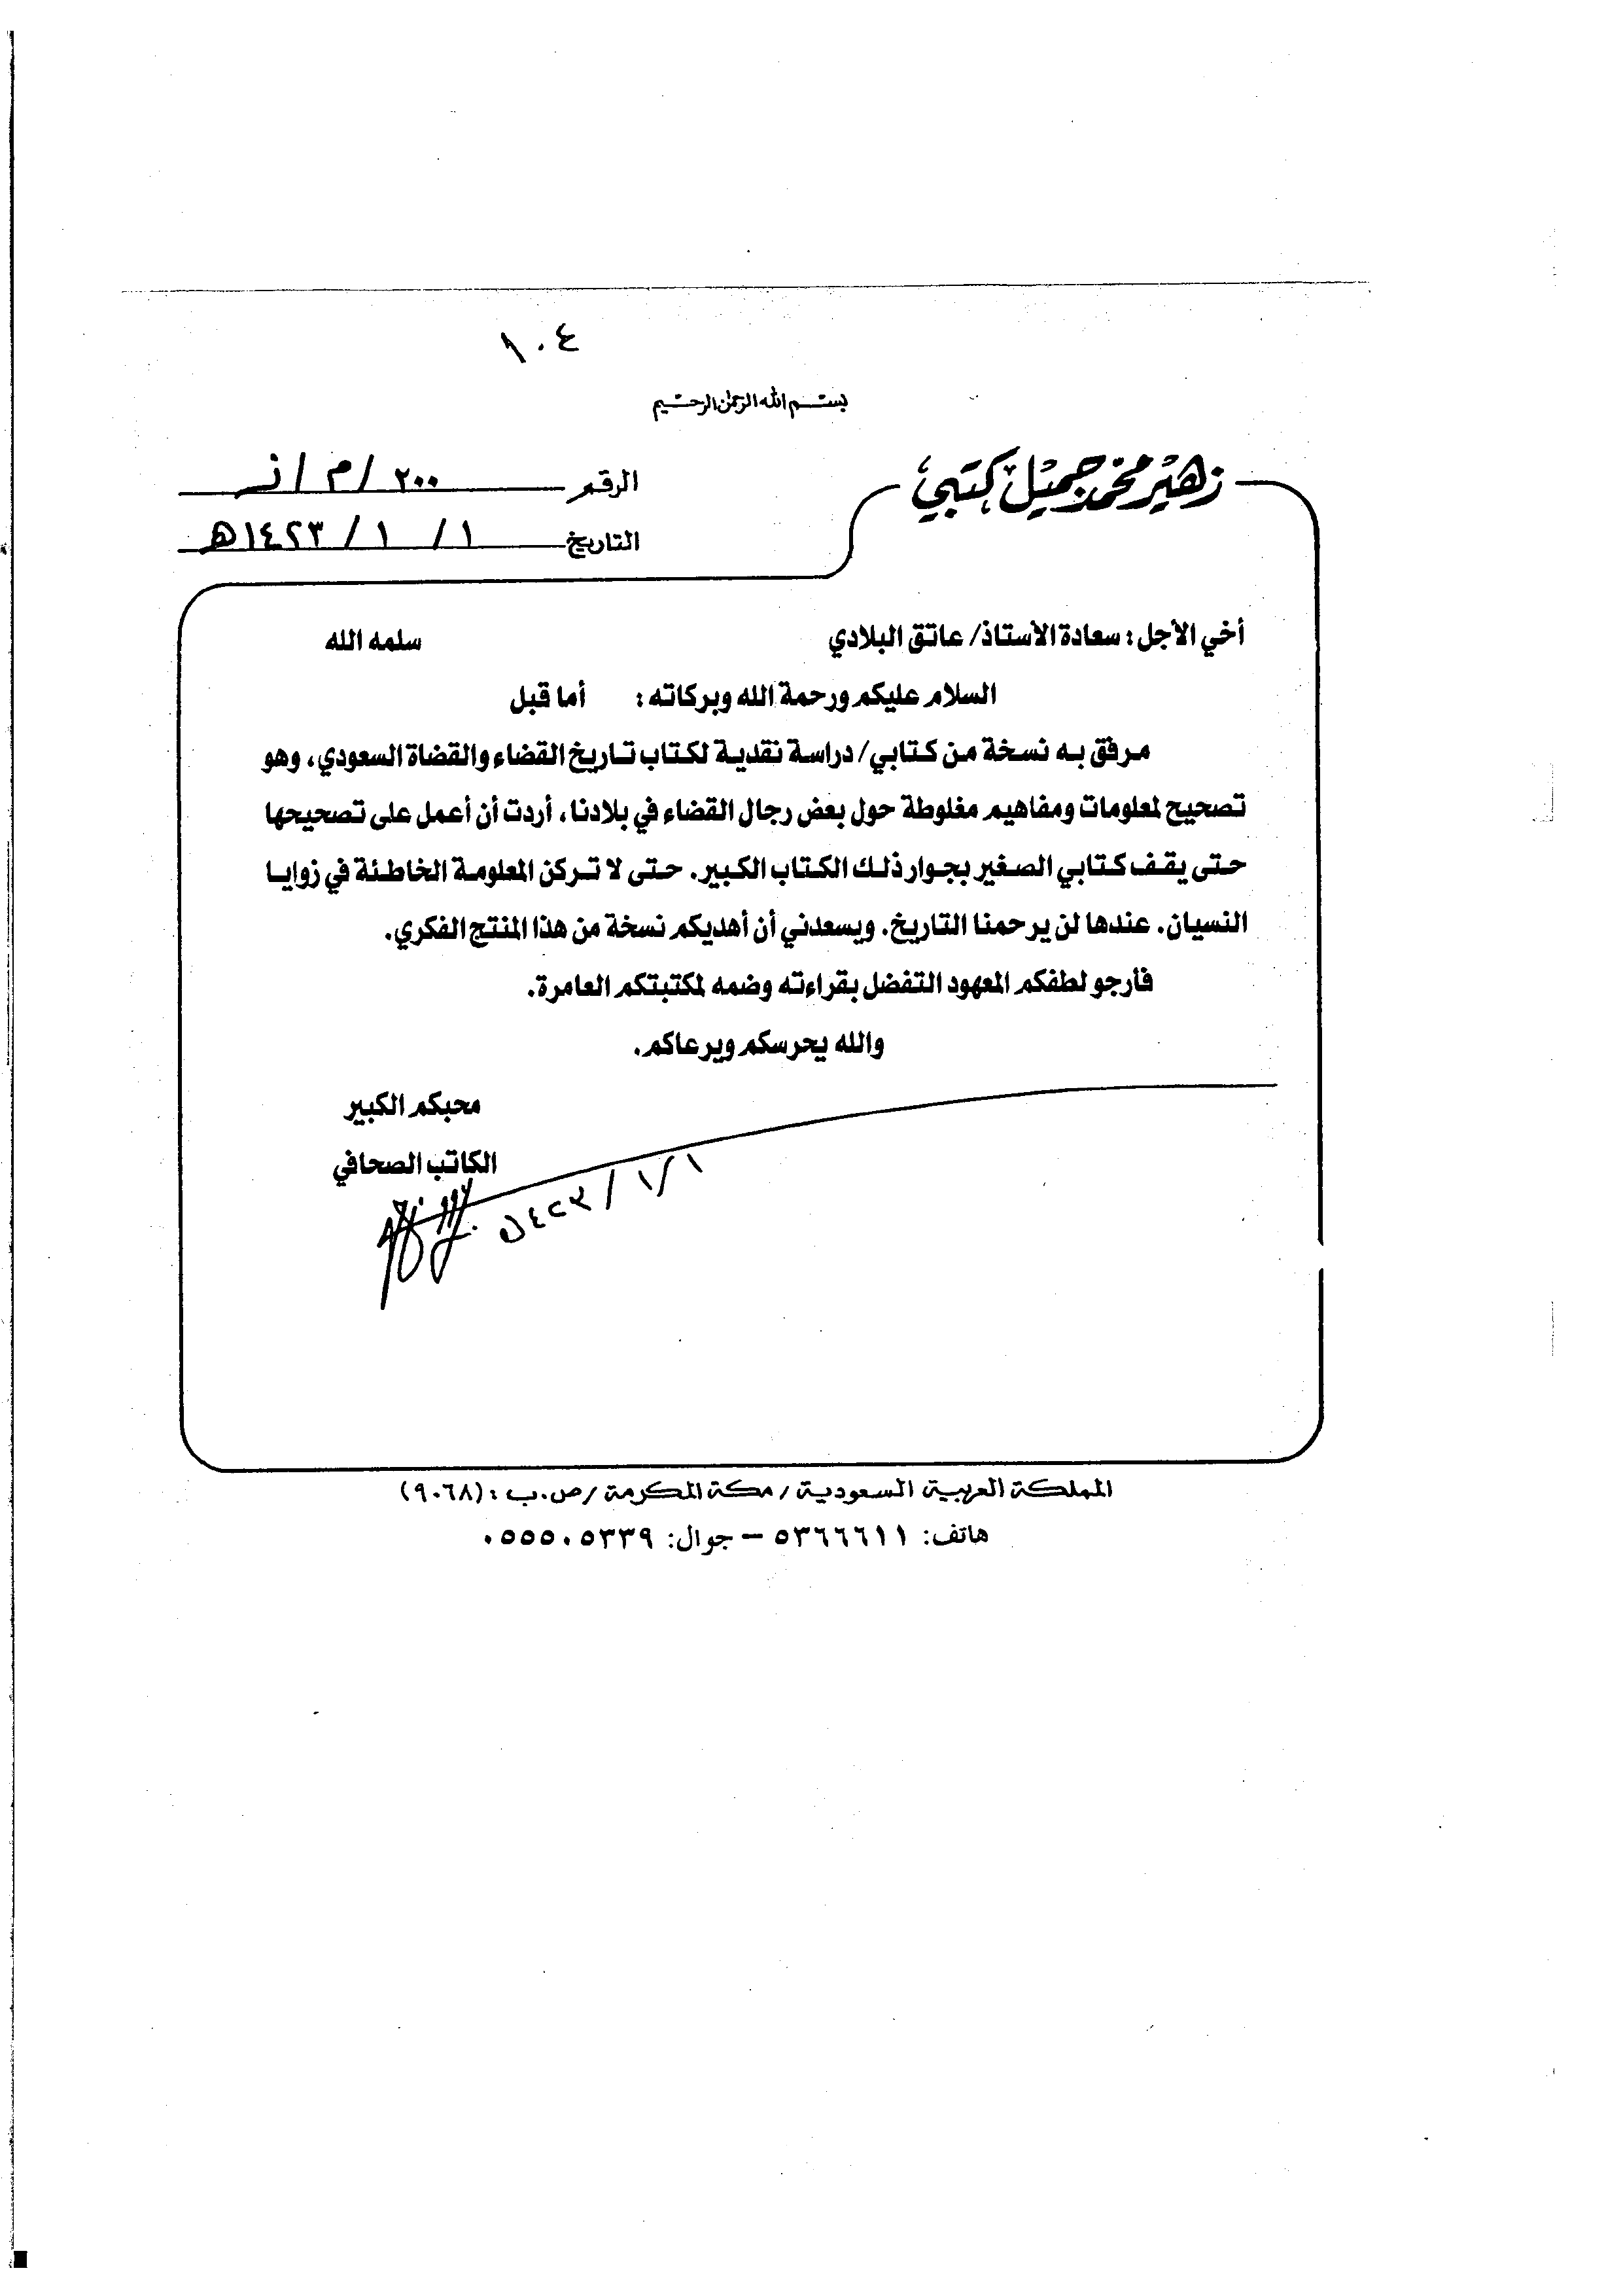 ١٠٤
بسم الله الرحمن الرحيم
زهير محمد جميل كتبي
الرقم ٢٠٠ / م / ز
التاريخ ١ / ١ / ١٤٢٣هـ
أخي الأجل : سعادة الأستاذ/ عاتق البلادي سلمه الله
السلام عليكم ورحمة الله وبركاته : أما قبل
مرفق به نسخة من كتابي/ دراسة نقدية لكتاب تاريخ القضاء والقضاة السعودي، وهو
تصحيح لمعلومات ومفاهيم مغلوطة حول بعض رجال القضاء في بلادنا، أردت أن أعمل على تصحيحها
حتى يقف كتابي الصغير بجوار ذلك الكتاب الكبير. حتى لا تركن المعلومة الخاطئة في زوايا
النسيان. عندها لن يرحمنا التاريخ. ويسعدني أن أهديكم نسخة من هذا المنتج الفكري.
فأرجو لطفكم المعهود التفضل بقراءته وضمه لمكتبتكم العامرة.
والله يحرسكم ويرعاكم.
محبكم الكبير
الكاتب الصحافي
١/١/٤٢٣هـ
المملكة العربية السعودية / مكة المكرمة / ص.ب : (٩٠٦٨)
هاتف: ٥٣٦٦٦١١ – جوال: ٠٥٥٥٠٥٣٣٩